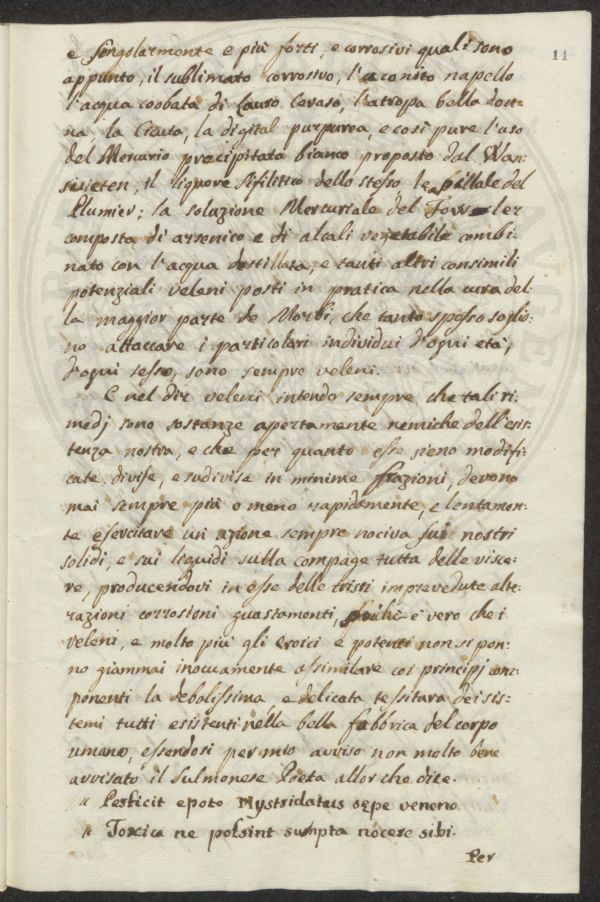 11
e singolarmente e più forti, e corrosivi quali sono
appunto, il sublimato corrosivo, l'aconito napello
l'acqua coobata di Lauro Ceraso, l'atropa bella don=
na la Cicuta, la digital purpurea, e così pure l'uso
del Mercurio precipitato bianco proposto dal Wan=
swieten, il liquore sifilitico dello stesso le pillale del
Plumier; la soluzione Mercuriale del Fowler
composta di arsenico e di alcali vegetabile combi=
nato con l'acqua destillata, e tanti altri consimili
potenziali veleni posti in pratica nella cura del=
la maggior parte de Morbi, che tanto spesso soglio=
no attaccare i particolari individui d'ogni età,
d'ogni sesso, sono sempre veleni.
E nel dir veleni intendo sempre che tali ri=
medj sono sostanze apertamente nemiche dell'esis=
tenza nostra, e che per quanto esse sieno modifi=
cate divise, e sudivise in minime frazioni, devono
mai sempre più o meno rapidamente, e lentamen=
te esercitare un azione sempre nociva sui nostri
solidi, e sui liquidi sulla compage tutta delle visce=
re, producendovi in esse delle tristi imprevedute alte=
razioni corrosioni guastamenti, poiché è vero che i
veleni, e molto più gli eroici e potenti non si pon=
no giammai inocuamente assimilare coi principj com=
ponenti la debolissima, e delicata tessitura dei sis=
temi tutti esistenti nella bella fabbrica del corpo
umano, essendosi per mio avviso non molto bene
avvisato il Sulmonese Poeta allor che dice.
" Perficit epoto Mystridateus sepe veneno
" Toxica ne possint sumpta nocere sibi.
Per